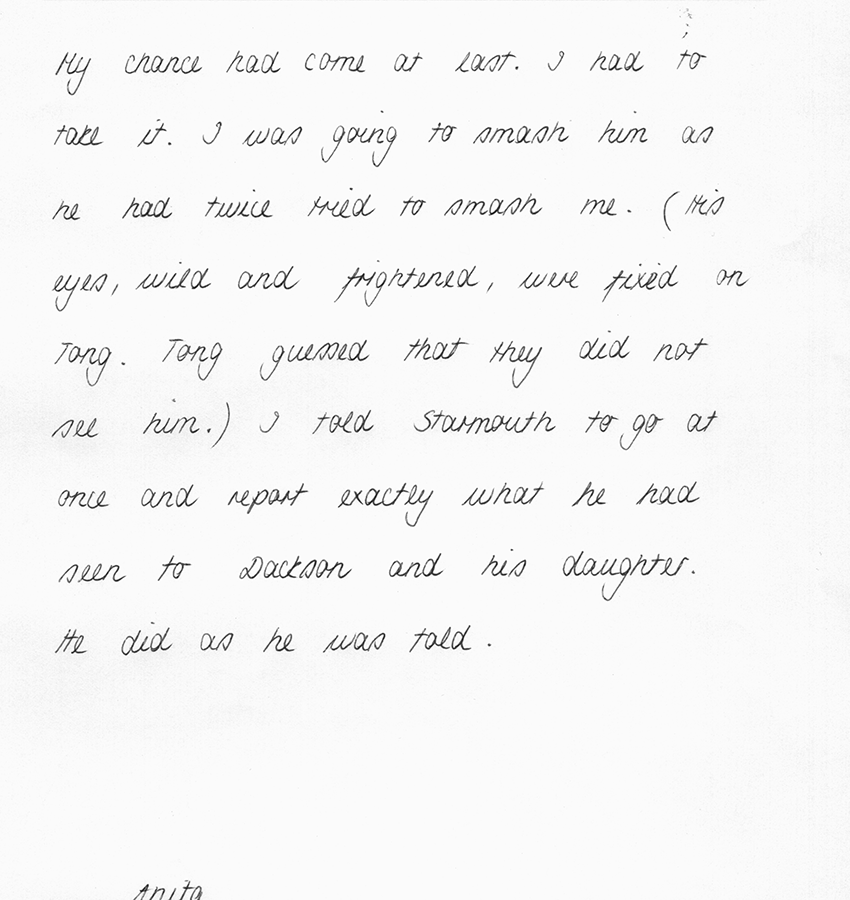 My chance had come at last. I had to
take it. I was going to smash him as
he had twice tried to smash me. (His
eyes, wild and frightened, were fixed on
Tong. Tong guessed that they did not
see him.) I told Starmouth to go at
once and report exactly what he had
seen to Dackson and his daughter.
He did as he was told.
Anita